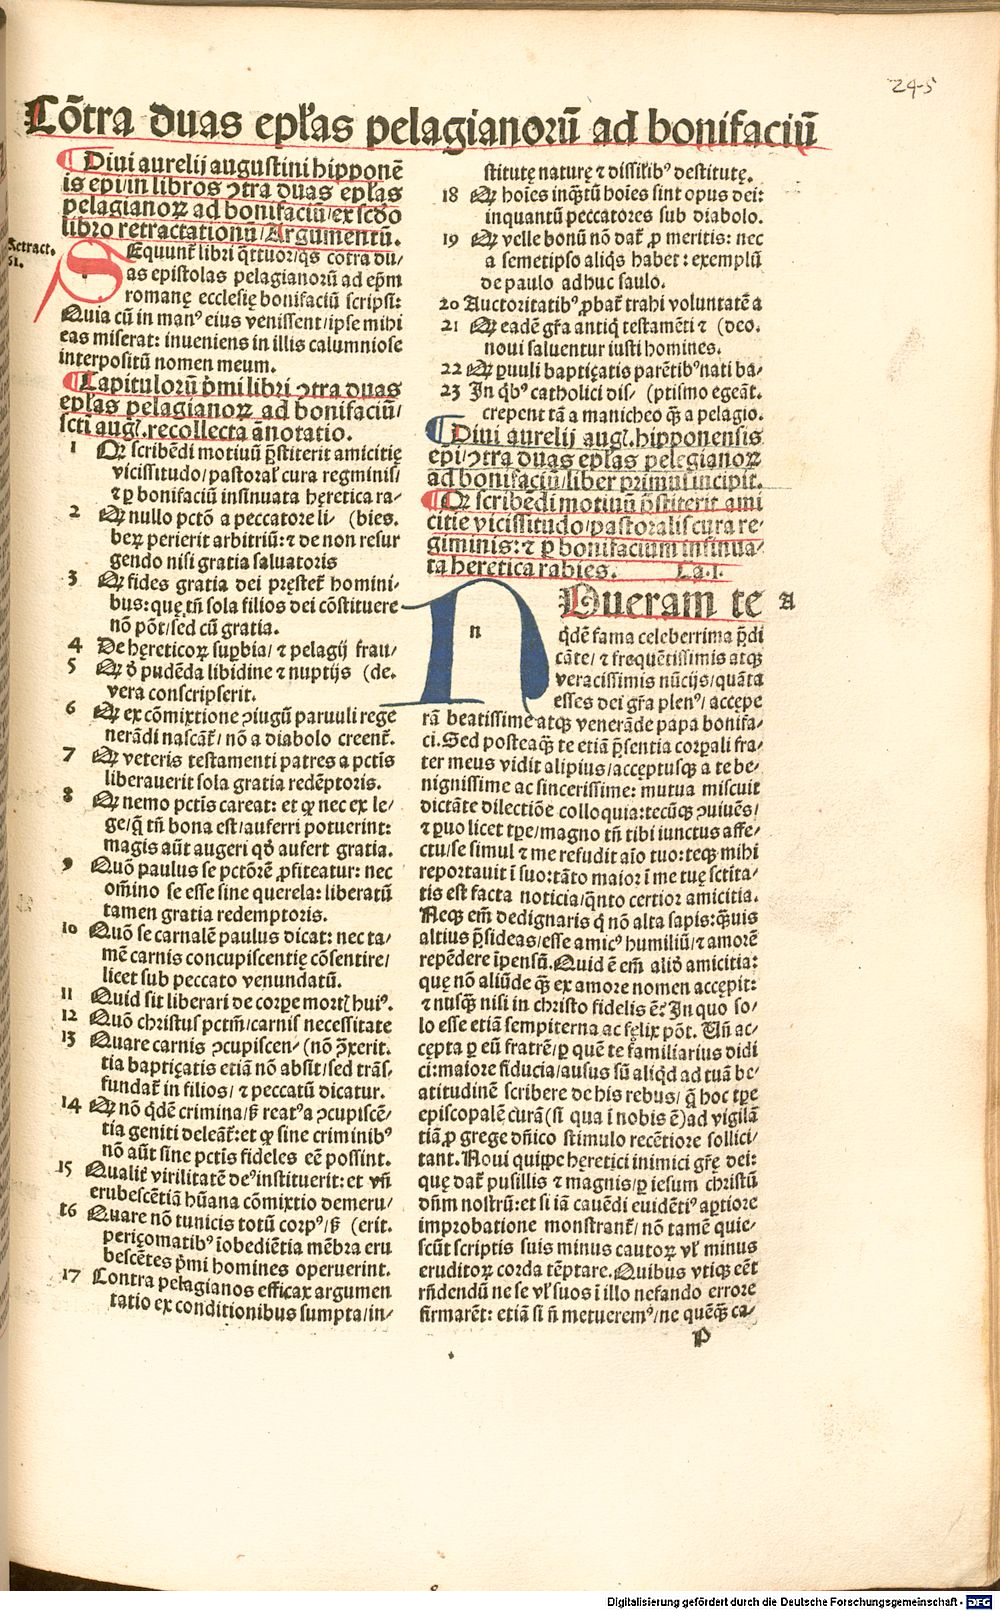 245
Cõtra duas epł'as pelagianorũ ad bonifaciũ
Diui aurelij augustini hipponẽ
is epi/in libros ꝯtra duas epł'as
pelagianoꝝ ad bonifaciũ/ex scd'o
libro retractationũ/Argumentũ.
Retract.
61.
SEquunt̃ libri q̃ttuor/qs cõtra du/
as epistolas pelagianorũ ad ep̃m
romanę ecclesię bonifaciũ scripsi:
Quia cũ in manꝰ eius venissent/ipse mihi
eas miserat: inueniens in illis calumniose
interpositũ nomen meum.
Capitulorũ p̃mi libri ꝯtra duas
epł'as pelagianoꝝ ad bonifaciũ/
scti augł. recollecta ãnotatio.
1 Qꝙ scribẽdi motiuũ p̃stiterit amicitię
vicissitudo/pastoral' cura regminis/
⁊ ꝑ bonifaciũ insinuata hęretica ra-
2 Qꝙ nullo pctõ a peccatore li- (bies.
beꝝ perierit arbitriũ: ⁊ de non resur
gendo nisi gratia saluatoris
3 Qꝙ fides gratia dei pręstet̃ homini-
bus: quę tñ sola filios dei cõstituere
nõ põt/sed cũ gratia.
4 De hęreticoꝝ suꝑbia/⁊ pelagij frau/
5 Qꝙ d' pudẽda libidine ⁊ nuptijs (de.
vera conscripserit.
6 Qꝙ ex cõmixtione ꝯiugũ paruuli rege
nerãdi nascãt̃/nõ a diabolo creent̃.
7 Qꝙ veteris testamenti patres a pctis
liberauerit sola gratia redẽptoris.
8 Qꝙ nemo pctis careat: et ꝙ nec ex le/
ge/q̃ tñ bona est/auferri potuerint:
magis aũt augeri qd' aufert gratia.
9 Quõ paulus se pctõrẽ ꝓfiteatur: nec
om̃ino se esse sine querela: liberatũ
tamen gratia redemptoris.
10 Quõ se carnalẽ paulus dicat: nec ta/
mẽ carnis concupiscentię cõsentire/
licet sub peccato venundatũ.
11 Quid sit liberari de corꝑe mortł huiꝰ.
12 Quõ christus pctm̃/carnis necessitate
13 Quare carnis ꝯcupiscen/ (nõ p̃xerit.
tia baptiçatis etiã nõ absit/sed trãs/
fundat̃ in filios/⁊ peccatũ dicatur.
14 Qꝙ nõ q̃dẽ crimina/ß reatꝰ a ꝯcupiscẽ/
tia geniti deleãt̃: et ꝙ sine criminibꝰ
nõ aũt sine pctis fideles eẽ possint.
15 Qualit̃ virilitatẽ deꝰ instituerit: et vñ
erubescẽtiã hũana cõmixtio demeru/
16 Quare nõ tunicis totũ corpꝰ/ß (erit.
periçomatibꝰ ĩobediẽtia mẽbra eru
bescẽtes p̃mi homines operuerint.
17 Contra pelagianos efficax argumen
tatio ex conditionibus sumpta/in/
stitutę naturę ⁊ dissilibꝰ destitutę.
18 Qꝙ hoĩes inq̃tũ hoĩes sint opus dei:
inquantũ peccatores sub diabolo.
19 Qꝙ velle bonũ nõ dat̃ ꝓ meritis: nec
a semetipso aliq̃s habet: exemplũ
de paulo adhuc saulo.
20 Auctoritatibꝰ ꝓbat̃ trahi voluntatẽ a
21 Qꝙ eadẽ gr̃a antiq̃ testamẽti ⁊ (deo.
noui saluentur iusti homines.
22 Qꝙ ꝑuuli baptiçatis parẽtibꝰ nati ba/
23 In q̃bꝰ catholici dis/ (ptismo egeãt.
crepent tã a manicheo q̃ȝ a pelagio.
Diui aurelij augł. hipponensis
ep̃i/ꝯtra duas epł'as pelegianoꝝ
ad bonifaciũ/liber primus incipit.
Qꝙ scribẽdi motiuũ p̃stiterit ami
citie vicissitudo/pastoralis cura re/
giminis: ⁊ ꝑ bonifacium insinua/
ta heretica rabies. Ca.I.
n
NOueram te A
q̃dẽ fama celeberrima p̃di
cãte/⁊ frequẽtissimis atqȝ
veracissimis nũcijs/quãta
esses dei gr̃a plenꝰ/accępe
rã beatissime atqȝ venerãde papa bonifa/
ci. Sed posteaq̃ȝ te etiã p̃sentia corꝑali fra/
ter meus vidit alipius/acceptusqȝ a te be/
nignissime ac sincerissime: mutua miscuit
dictãte dilectiõe colloquia: tecũqȝ ꝯuiuẽs/
⁊ ꝑuo licet tꝑe/magno tñ tibi iunctus affe/
ctu/se simul ⁊ me refudit aĩo tuo: teqȝ mihi
reportauit ĩ suo: tãto maior ĩ me tuę sctita/
tis est facta noticia/q̃nto certior amicitia.
Neqȝ em̃ dedignaris q̃ nõ alta sapis: q̃ȝuis
altius p̃sideas/esse amicꝰ humiliũ/⁊ amorẽ
repẽdere ĩpensũ. Quid ẽ em̃ aliȏd amicitia:
quę nõ aliũde q̃ȝ ex amore nomen accepit:
⁊ nusq̃ȝ nisi in christo fidelis ẽ: In quo so/
lo esse etiã sempiterna ac fęlix põt. Uñ ac/
cępta ꝑ eũ fratrẽ/ꝑ quẽ te familiarius didi
ci: maiore fiducia/ausus sũ aliq̃d ad tuã be/
atitudinẽ scribere de his rebus/q̃ hoc tꝑe
episcopalẽ curã (si qua ĩ nobis ẽ) ad vigilã
tiã ꝓ grege dñico stimulo recẽtiore sollici/
tant. Noui quippe hęretici inimici gr̃ę dei:
quę dat̃ pusillis ⁊ magnis/ꝑ iesum christũ
dñm nostrũ: et si iã cauẽdi euidẽtiꝰ aꝑtiore
improbatione monstrant̃/nõ tamẽ quie/
scũt scriptis suis minus cautoꝝ vł minus
eruditoꝝ corda tẽptare. Quibus vtiqȝ eẽt
rñdendũ ne se vł suos ĩ illo nefando errore
firmarẽt: etiã si ñ metueremꝰ/ne quẽq̃ȝ ca/
P
Digitalisierung gefördert durch die Deutsche Forschungsgemeinschaft - DFG